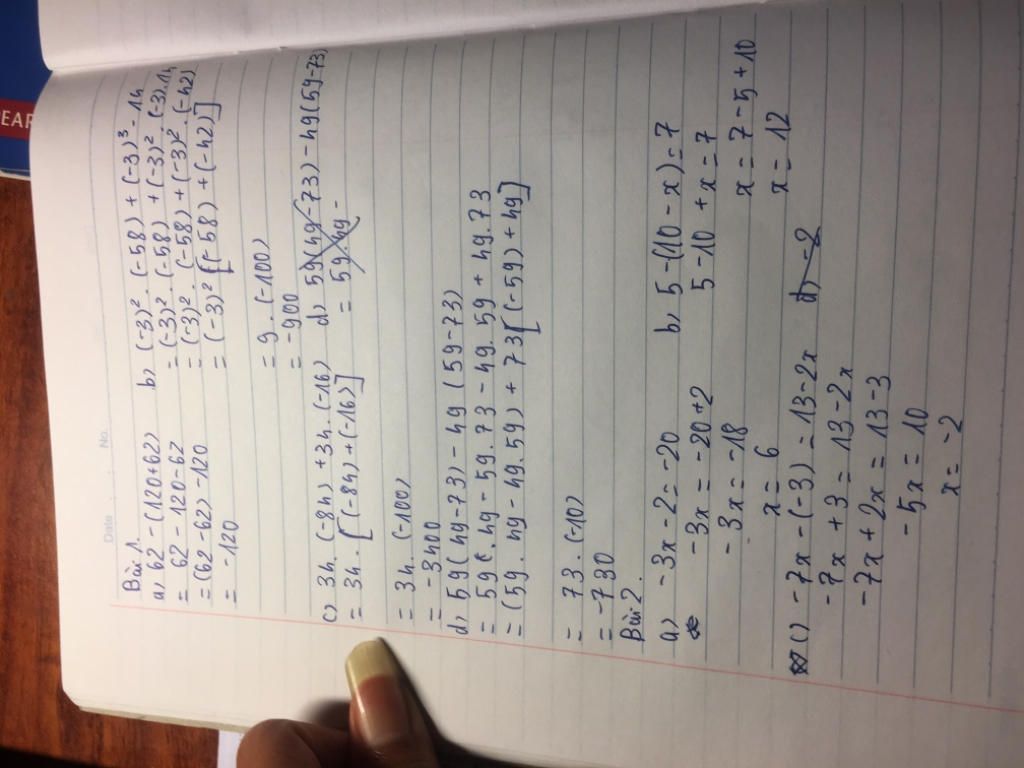 EAR
Date
No.
Bài 1.
a) 62 - (120+62)
= 62 - 120 - 62
= (62 - 62) - 120
= -120
b) (-3)² . (-58) + (-3)³ . 14
= (-3)² . (-58) + (-3)² . (-3) . 14
= (-3)² . (-58) + (-3)² . (-42)
= (-3)² [(-58) + (-42)]
= 9 . (-100)
= -900
c) 34. (-84) + 34. (-16)
= 34. [(-84) + (-16)]
= 34. (-100)
= -3400
d) 59(49-73) - 49(59-73)
= 59.49 -
d) 59(49-73) - 49 (59-73)
= 59. 49 - 59.73 - 49.59 + 49.73
= (59. 49 - 49.59) + 73[(-59) + 49]
= 73. (-10)
= -730
Bài 2.
a) -3x - 2 = -20
-3x = -20+2
-3x = -18
x = 6
b) 5 - (10 - x) = 7
5 - 10 + x = 7
x = 7 - 5 + 10
x = 12
c) -7x - (-3) = 13-2x
-7x + 3 = 13 - 2x
-7x + 2x = 13 - 3
-5x = 10
x = -2
d) -2